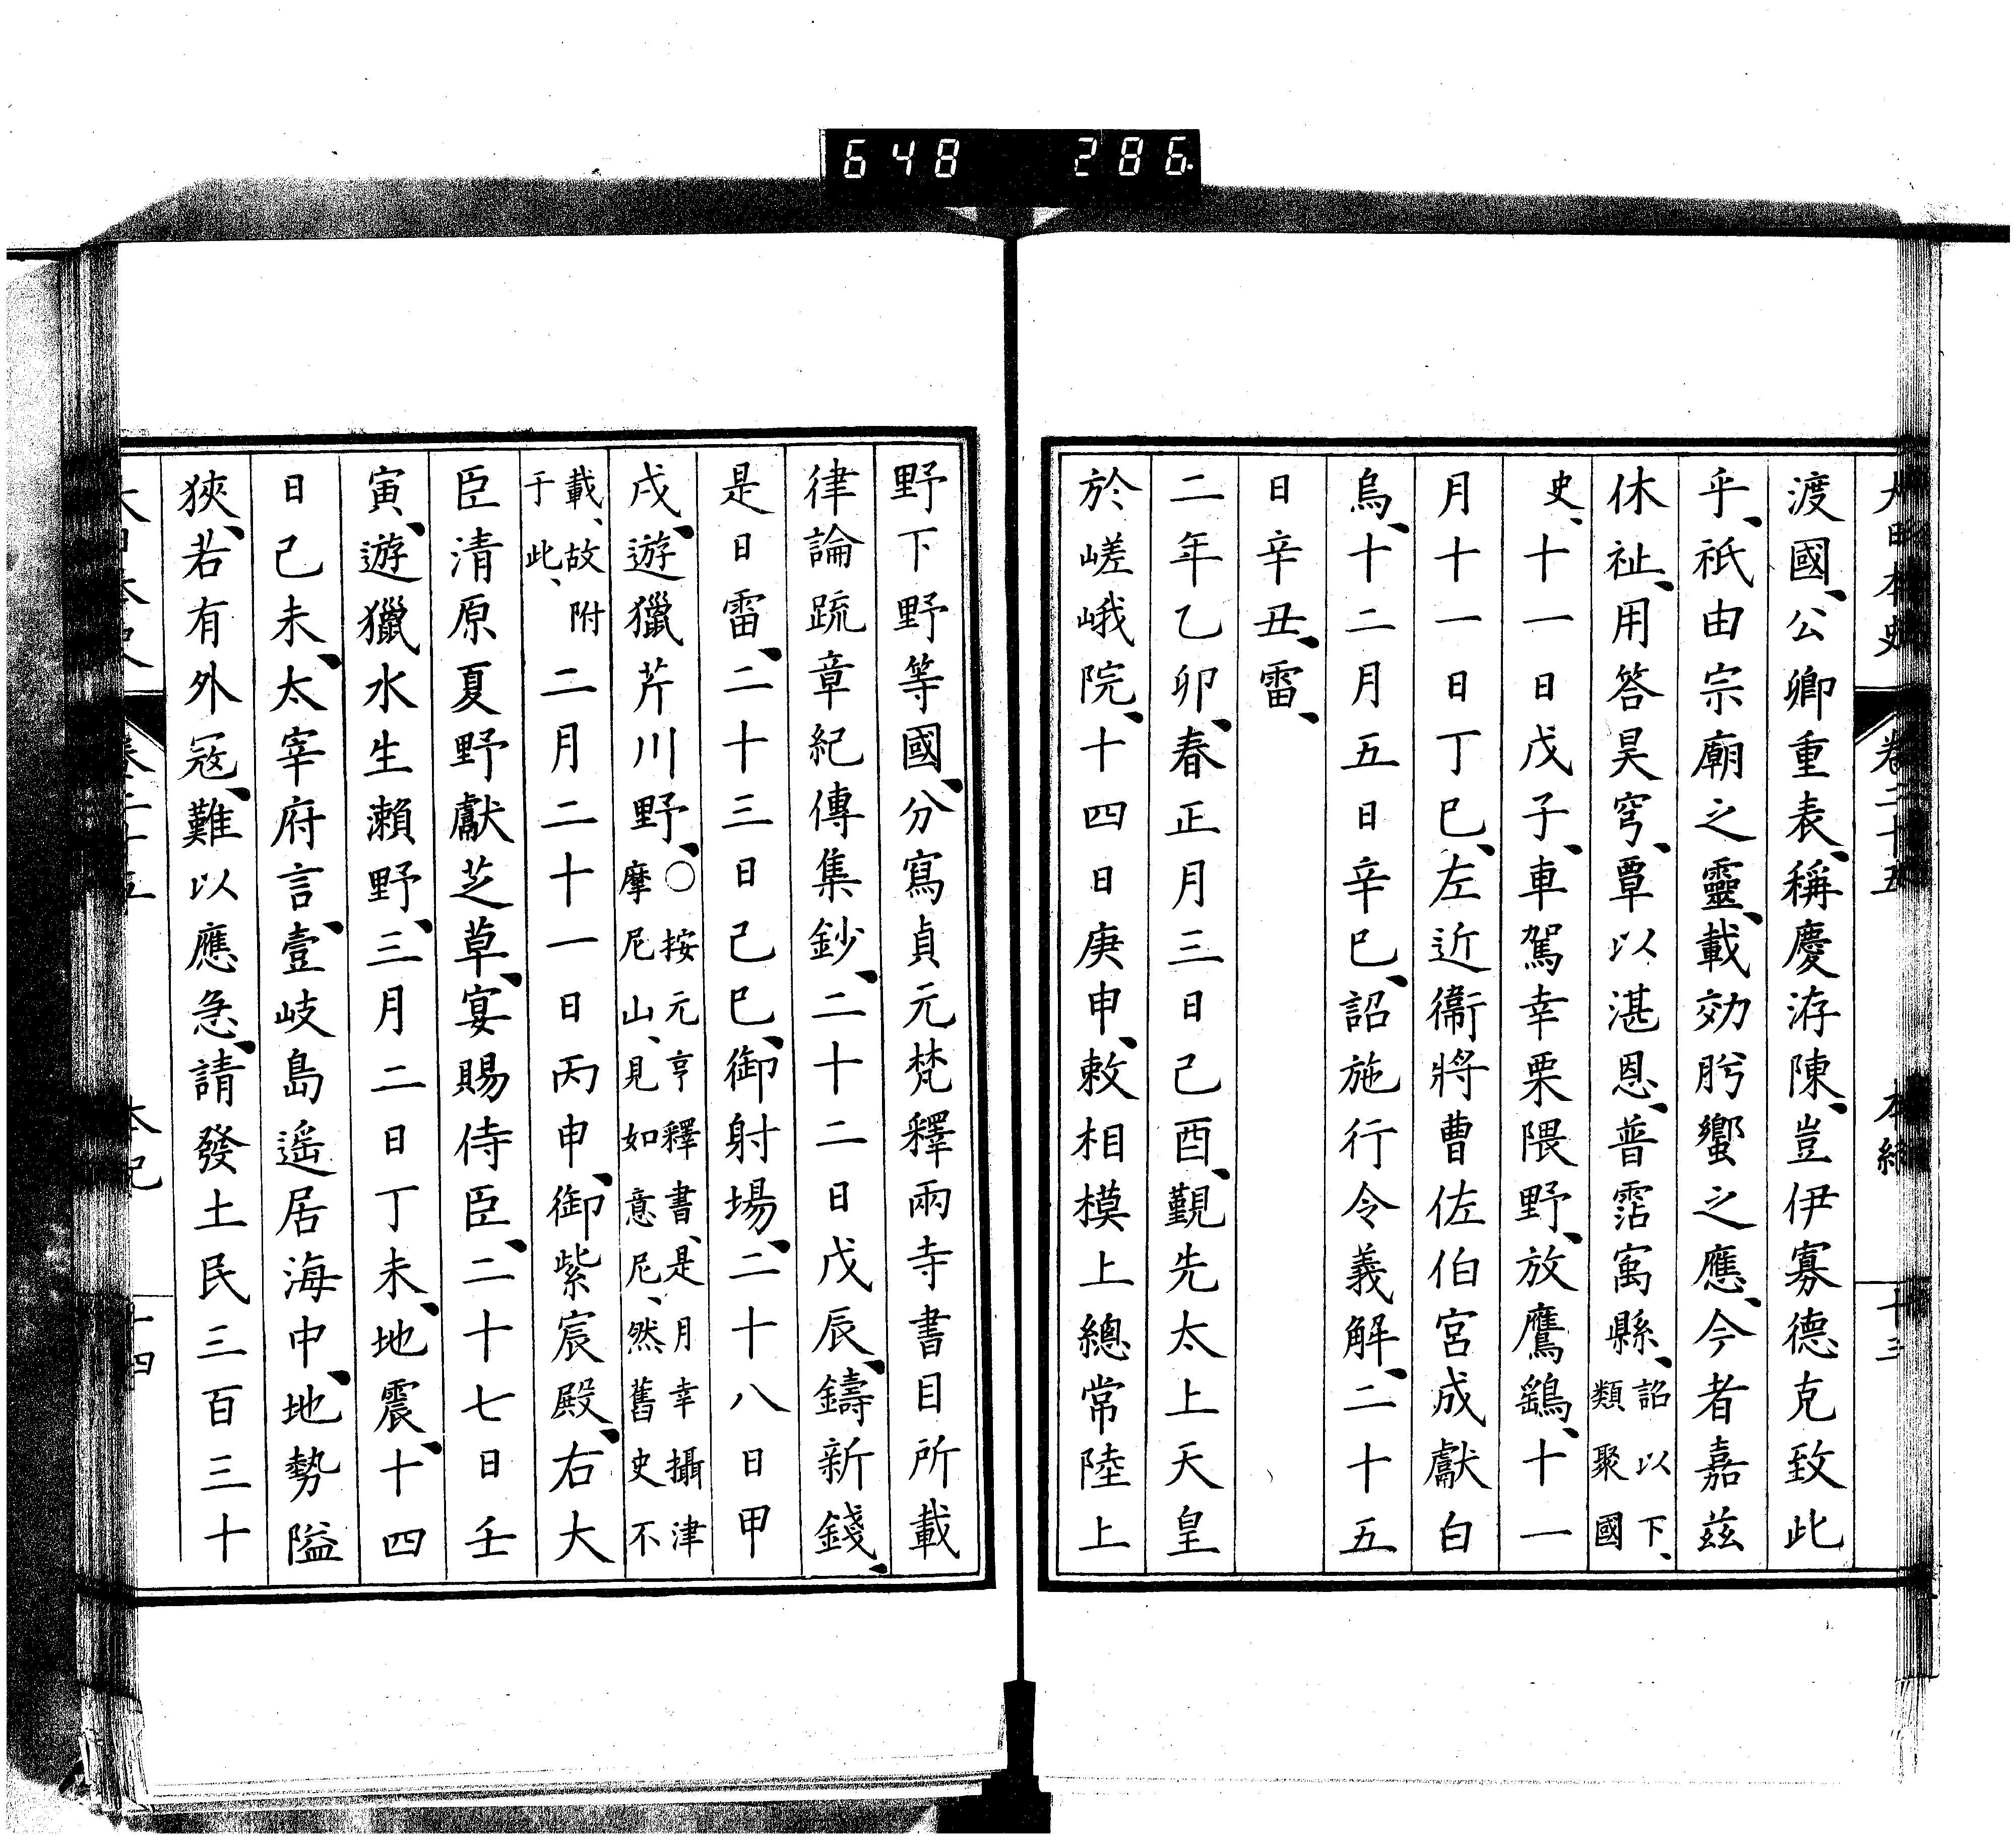 648 286
大日本史 卷二十五 本紀 十三
渡國、公卿重表、稱慶洊陳、豈伊寡德克致此
乎、祇由宗廟之靈、載効肹蠁之應、今者嘉茲
休祉、用答昊穹、覃以湛恩、普霑寓縣、詔以下、類聚國
史、十一日戊子、車駕幸栗隈野、放鷹鷂、十一
月十一日丁巳、左近衞將曹佐伯宮成獻白
烏、十二月五日辛巳、詔施行令義解、二十五
日辛丑、雷、
二年乙卯、春正月三日己酉、覲先太上天皇
於嵯峨院、十四日庚申、敕相模上總常陸上
野下野等國、分寫貞元梵釋兩寺書目所載
律論疏章紀傳集鈔、二十二日戊辰、鑄新錢、
是日雷、二十三日己巳、御射場、二十八日甲
戌、遊獵芹川野、〇按元亨釋書、是月幸攝津摩尼山、見如意尼、然舊史不
載、故附于此、二月二十一日丙申、御紫宸殿、右大
臣清原夏野獻芝草、宴賜侍臣、二十七日壬
寅、遊獵水生瀨野、三月二日丁未、地震、十四
日己未、太宰府言、壹岐島遥居海中、地勢隘
狹、若有外冦、難以應急、請發土民三百三十
大日本史 卷二十五 本紀 十四